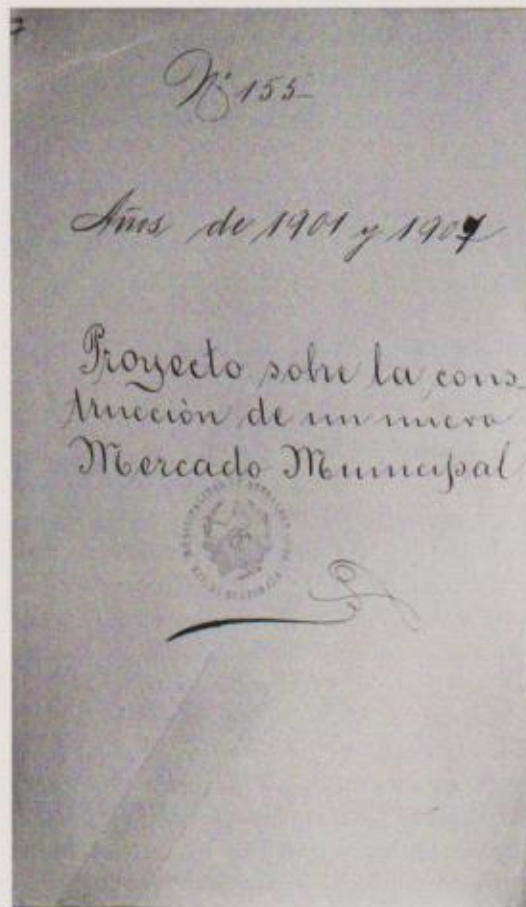 Nº 155
Años de 1901 y 1907
Proyecto sobre la cons
trucción de un nuevo
Mercado Municipal